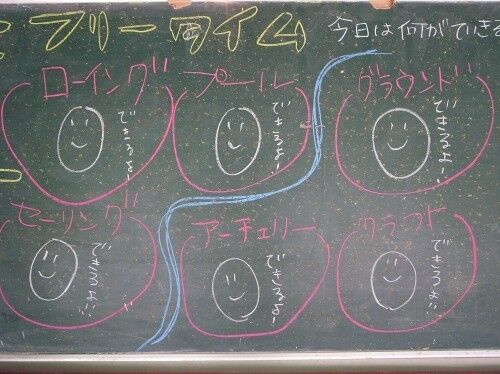 フリータイム
今日は何ができる
ローイング
できるよ!
プール
できるよ!
グラウンド
できるよ!!
セーリング
できるよ!!
アーチェリー
できるよ!
クラフト
できるよ!!